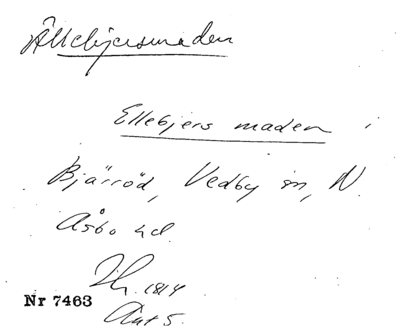 Ällebjersmaden
Ellebjers maden i
Bjärröd, Vedby sn, N.
Åsbo hd.
Sk. 1814
Nr 7463
Akt 5.